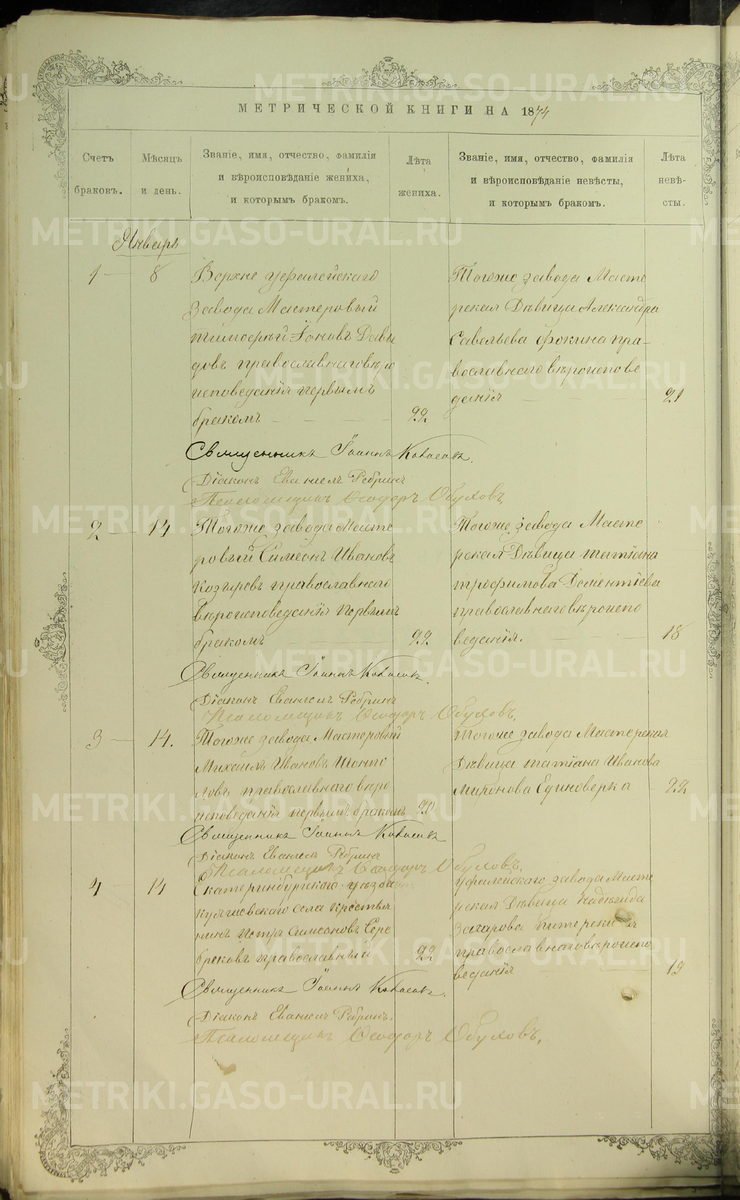 МЕТРИЧЕСКОЙ КНИГИ НА 1874
Счетъ браковъ.
Мѣсяцъ и день.
Званіе, имя, отчество, фамилія
и вѣроисповѣданіе жениха,
и которымъ бракомъ.
Лѣта жениха.
Званіе, имя, отчество, фамилія
и вѣроисповѣданіе невѣсты,
и которымъ бракомъ.
Лѣта невѣ-
сты.
Январь
1 8
Верхне уфалейскаго
завода Мастеровый
Тимофей Іоновъ Давы
довъ православнаго вѣро
исповеданія первымъ
бракомъ 22
Тогоже завода Масте
рская Дѣвица Александра
Савельева Фокина пра-
вославнаго вѣроиспове
данія 21
Священникъ Іоаннъ
Діаконъ Евгр
Псаломщикъ Ѳеодоръ Обуховъ
2 14
Тогоже завода Масте
ровый Симеонъ Ивановъ
Козыревъ православнаго
Вѣроисповеданія Первымъ
бракомъ 22
Тогоже завода Масте
рская Дѣвица Татіана
Трофимова Дементіева
православнаго вѣроиспо
веданія. 18
Священникъ Іоаннъ
Діаконъ
Псаломщикъ Ѳеодоръ Обуховъ,
3 14.
Тогоже завода Мастеровый
Михаилъ Ивановъ
православнаго вѣро
исповеданія первымъ бракомъ 20
Тогоже завода Мастерская
Дѣвица Татіана Иванова
Миронова Единоверка 22
Священникъ Іоаннъ
Діаконъ
Псаломщикъ Ѳеодоръ Обуховъ,
4 14
Екатеринбургскаго уѣзда
села Крестья
нинъ Петръ Симеоновъ Сере
бряковъ православный 22
Уфалейскаго завода Масте
рская Дѣвица Надежда
Захарова
православнаго вѣроиспо
веданія 19
Священникъ Іоаннъ
Діаконъ
Псаломщикъ Ѳеодоръ Обуховъ.
METRIKI.GASO-URAL.RU